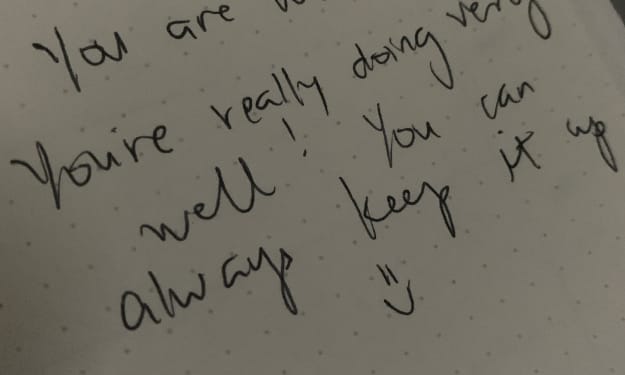 You are
You're really doing very
well! You can
always keep it up